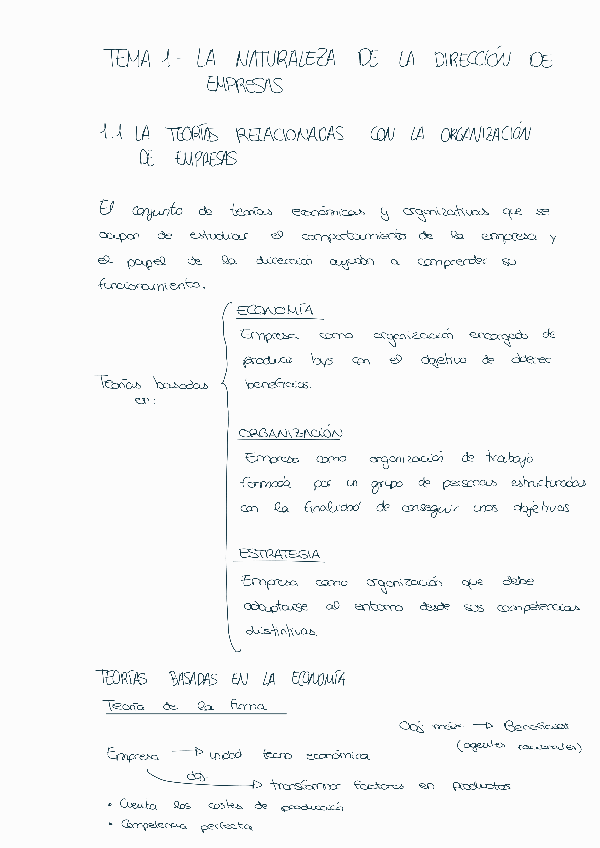 TEMA 1.- LA NATURALEZA DE LA DIRECCIÓN DE
EMPRESAS
1.1 LA TEORÍAS RELACIONADAS CON LA ORGANIZACIÓN
DE EMPRESAS
El conjunto de teorías económicas y organizativas que se
ocupan de estudiar el comportamiento de la empresa y
el papel de la dirección ayudan a comprender su
funcionamiento.
Teorías basadas
en:
ECONOMÍA
Empresa como organización encargada de
producir bys con el objetivo de obtener
beneficios.
ORGANIZACIÓN
Empresa como organización de trabajo
formada por un grupo de personas estructuradas
con la finalidad de conseguir unos objetivos
ESTRATEGIA
Empresa como organización que debe
adaptarse al entorno desde sus competencias
distintivas.
TEORÍAS BASADAS EN LA ECONOMÍA
Teoría de la firma
Obj max → Beneficios
(agentes racionales)
Empresa → unidad tecno económica
obj → transformar factores en productos
• Cuenta los costes de producción
• Competencia perfecta